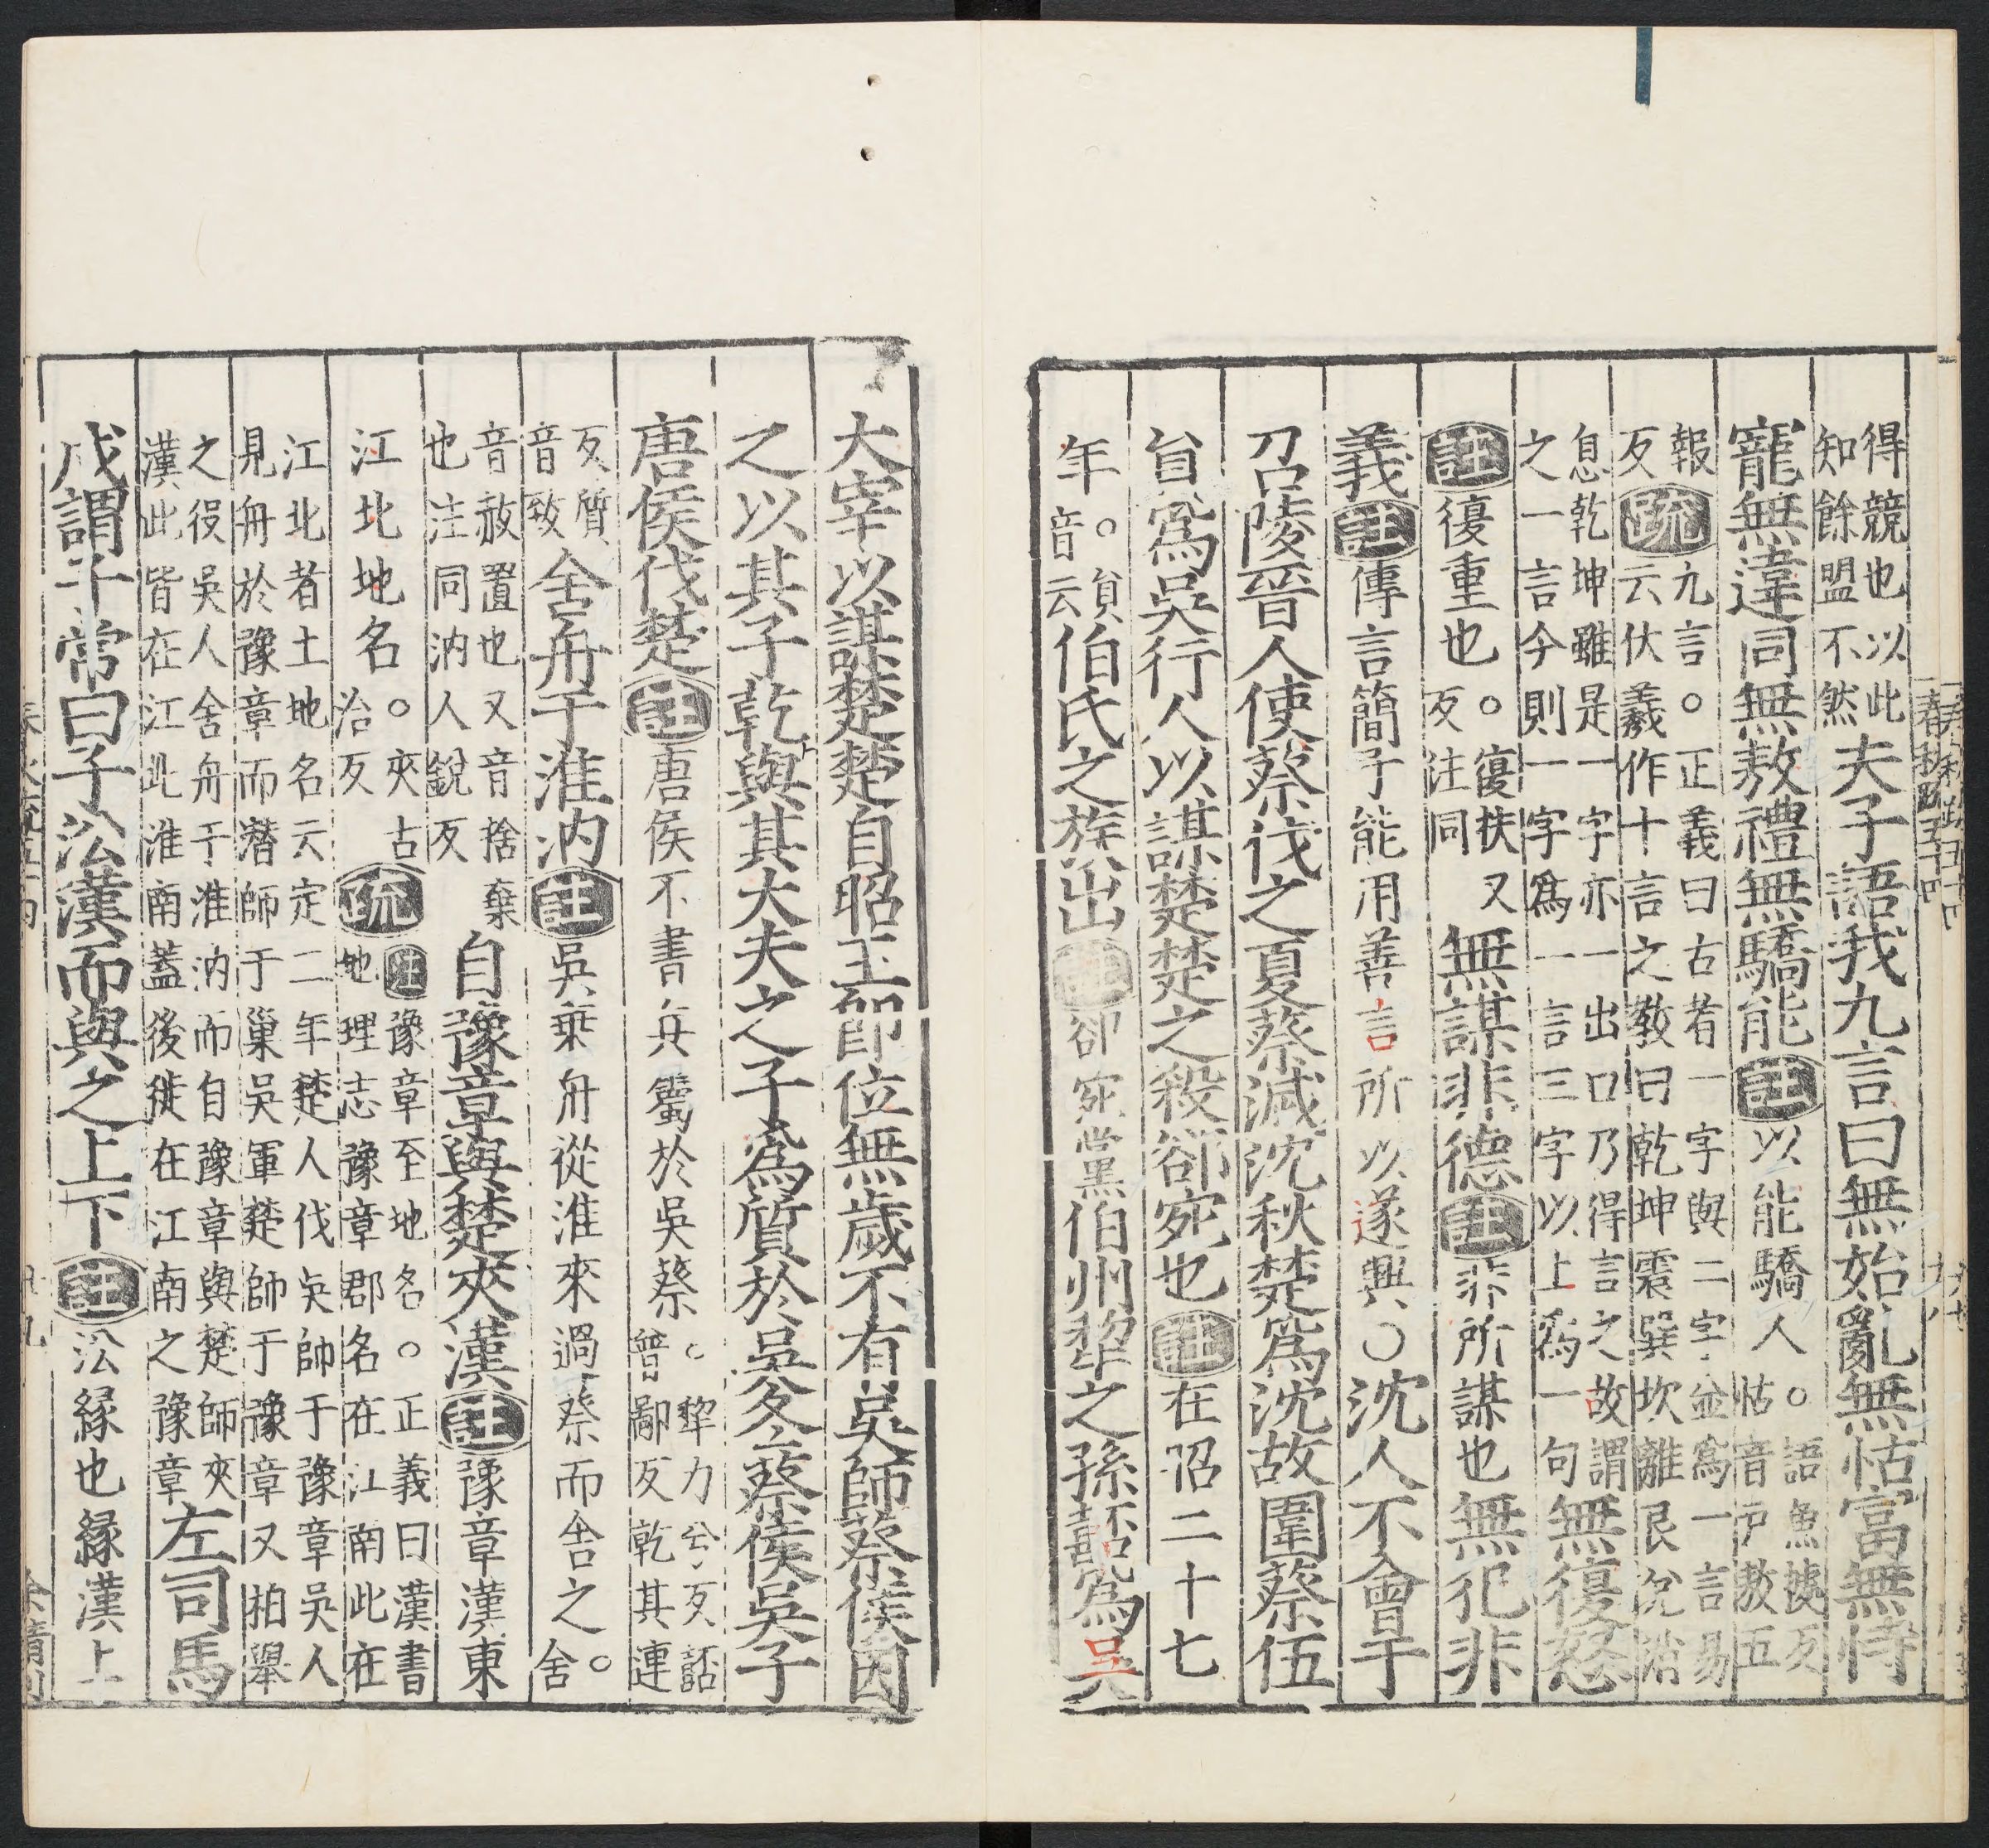 得競也以此知餘盟不然夫子語我九言曰無始亂無怙富無恃
寵無違同無敖禮無驕能註以能驕人。語魚據反怙音戶敖五
報反疏九言。正義曰古者一字與二字並爲一言易云伏羲作十言之敎曰乾坤震巽坎離艮兌消
息乾坤雖是一字亦一出口乃得言之故謂之一言今則一字爲一言三字以上爲一句無復怒
註復重也。復扶又反注同無謀非德註非所謀也無犯非
義註傳言簡子能用善言所以遂興〇沈人不會于
召陵晉人使蔡伐之夏蔡滅沈秋楚爲沈故圍蔡伍
員爲吳行人以謀楚楚之殺郤宛也註在昭二十七
年。員音云伯氏之族出註郤宛黨伯州犂之孫嚭爲吳
大宰以謀楚楚自昭王即位無歲不有吳師蔡侯因
之以其子乾與其大夫之子爲質於吳冬蔡侯吳子
唐侯伐楚註唐侯不書兵屬於吳蔡。犂力兮反嚭普鄙反乾其連
反質音致舍舟于淮汭註吳乗舟從淮來過蔡而舍之。舍
音赦置也又音捨棄也注同汭人銳反自豫章與楚夾漢註豫章漢東
江北地名。夾古洽反疏註豫章至地名。正義曰漢書地理志豫章郡名在江南此在
江北者土地名云定二年楚人伐吳師于豫章吳人見舟於豫章而潛師于巢吳軍楚師于豫章又柏舉
之役吳人舍舟于淮汭而自豫章與楚師夾漢此皆在江北淮南蓋後徙在江南之豫章左司馬
戌謂子常曰子沿漢而與之上下註沿緣也緣漢上